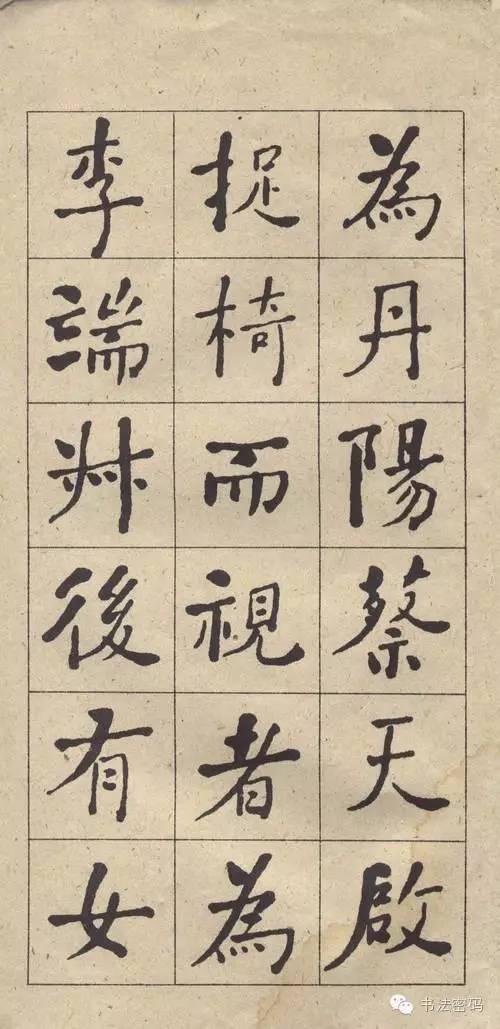 為丹陽蔡天啟
捉椅而視者為
李端叔後有女
书法密码